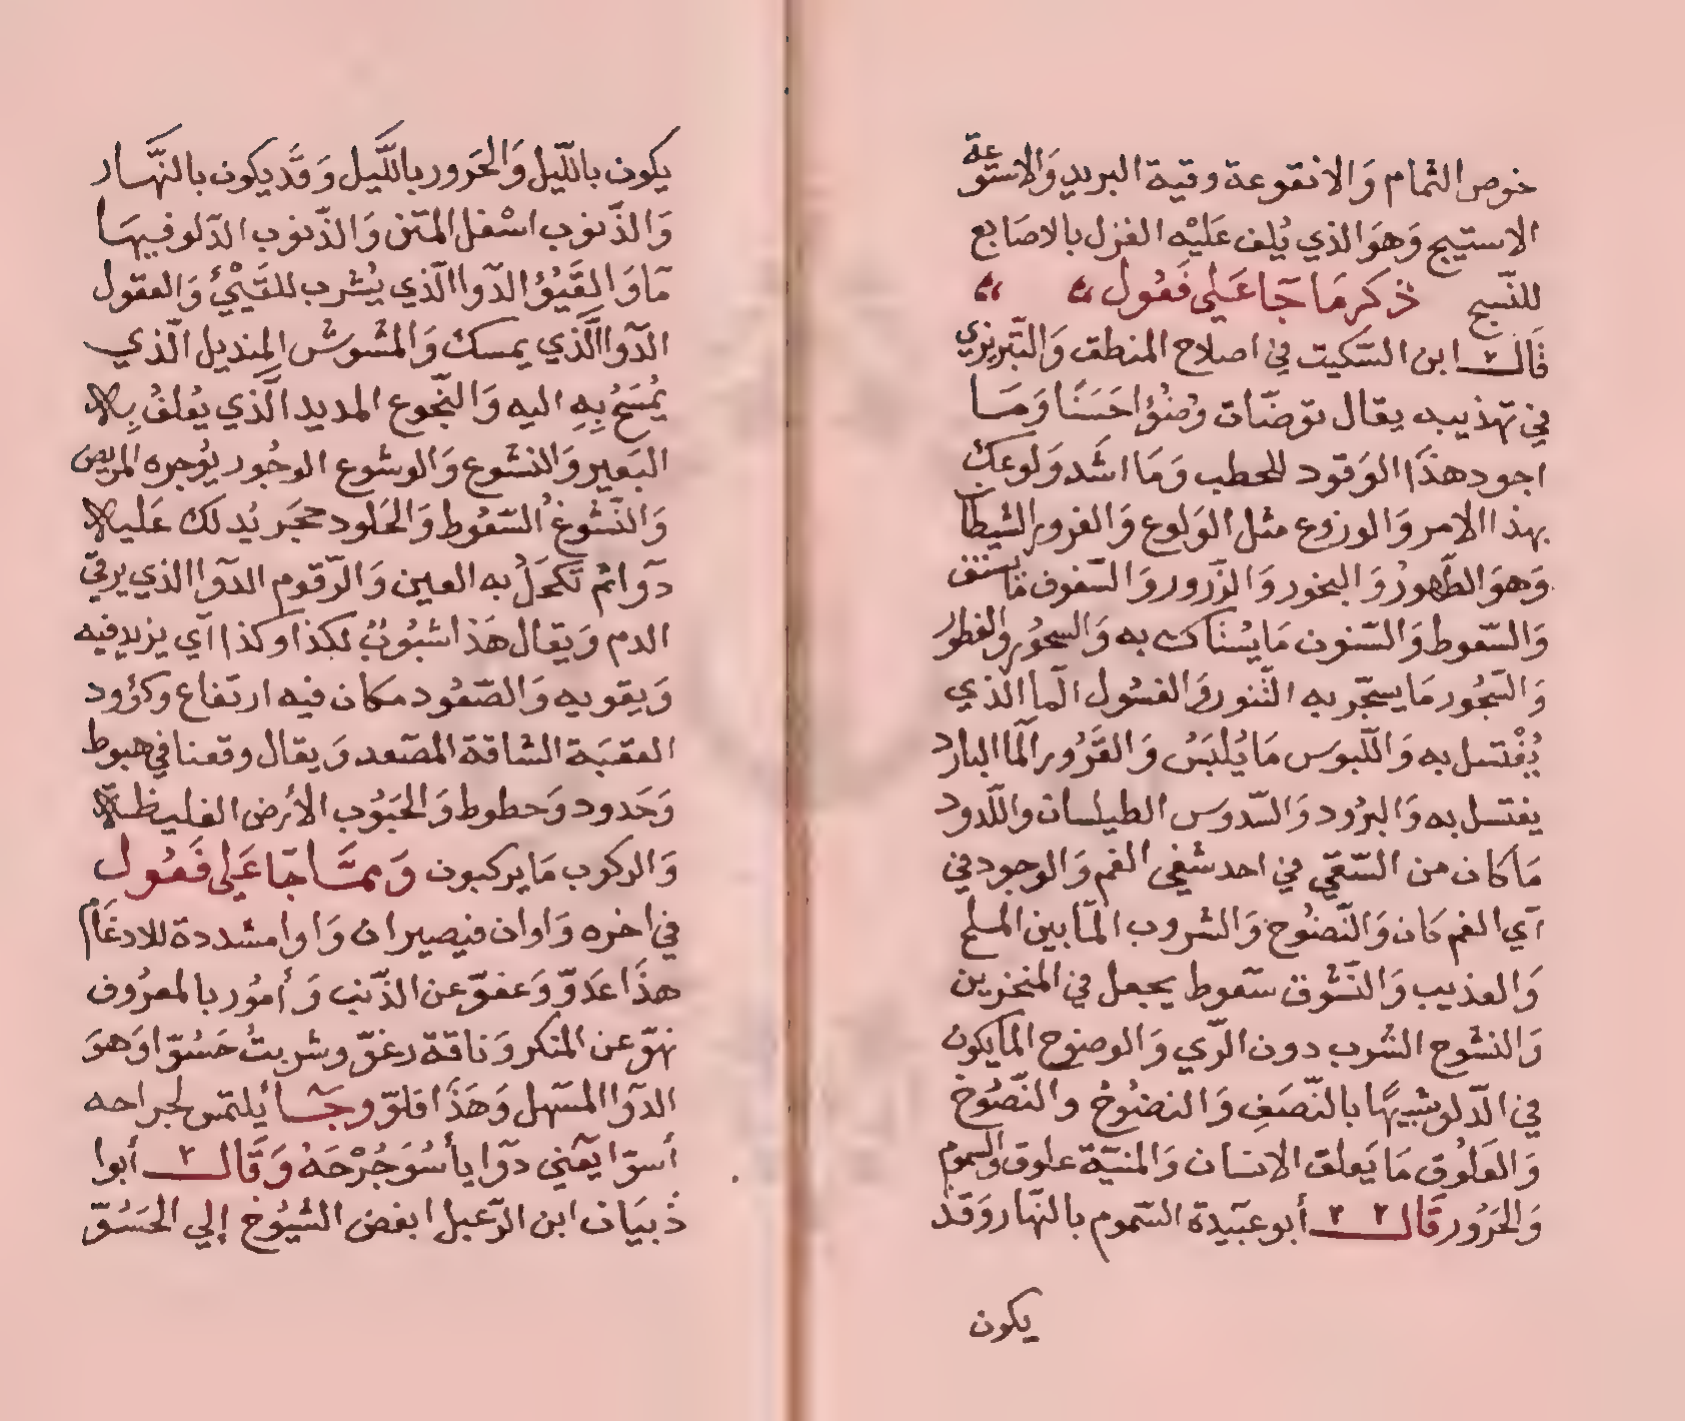 خوص الثمام وَالانقوعة وقبة البريد وَالاستوعة
الاستيج وَهوَ الذي يُلف عَليْه الغزل بالاصَابع
للنّسج ذكر مَا جَا عَلى فَعُول
قَالـــ ابن السّكيت في اصلاح المنطق وَالتّبريزي
في تهذيبه يقال توضّات وضُوُا حَسَنًا وَمَـا
اجود هذَا الوَقود للحطب وَمَا اشَد وَلوعك
بهذا الامر وَالوزوع مثل الوَلوع وَالغرور الشيطا
وَهوَ الطّهورُ وَالبخور وَالزّرور وَالسّفوف مَا
وَالسّعوط وَالسّنون مَا يُستَاك به وَالسحوُر والفطور
وَالسّجُور مَا يسجّر به التّنور وَالغسُول الّما الّذي
يُغْتسل به وَاللّبوَس مَا يُلبَسُ وَالقَرُور الّما البارد
يغتسل به وَالبرُود وَالسّدوس الطيلسان واللّدود
مَا كان من السّقي في احد شقي الفم وَالوجود في
آي الفم كان وَالنّضُوح وَالشروب المّا بين الملح
وَالعذيب وَالنّشُوق سَعوط يجعل في المنخرين
وَالنشوح الشُرب دون الرّي وَالوضوح الما يكون
في الّدلو شبيهًا بالنّصَفِ وَالنضُوحُ والنّصُوخ
وَالعَلُوق مَا يَعلق الانسَان وَالمنيّة علوق والسموم
وَالحَرُور قَالـــ أبو عبَيدة السّموم بالنهّار وَقد
يكون
يكون باللّيل وَالحَرور باللَّيل وَقَد يكون بالنَّهـار
وَالذَّنوب اسْفل المتن وَالذّنوب الدّلو فيهَا
مَا وَالقَيُوُ الدّوا الّذي يُشرب للقَيْئُ وَالعقول
الدّوا الَّذي يمسك وَالمشوش المنديل الّذي
يُمسَحُ بِهِ اليه وَالنّجوع المديد الَّذي يُعلفُ بِه
البَعير وَالنشوع وَالوشوع الوجُور يوُجره المريض
وَالنّشُوغُ السّعُوط وَالحَلود حجَر يُدلك عَليه
دوَا ثم تكحَلُ به العين وَالرّقوم الدوّا الذي يرقي
الدم وَيقال هَذا شبُوبٌ لكذا وكذا آي يزيد فيه
وَيقويه وَالصّعُود مكان فيه ارتفاع وكؤود
العقبَة الشاقة المصّعد وَيقال وقعنا في هبوط
وَحَدود وَحطوط وَالجَبُوب الأرض الغليظـة
وَالركوب مَا يركبون وَممّـا جَا عَلى فَعُول
في اخره وَاوان فيصيران وَاوا مشددة للادغَام
هذَا عَدَوّ وَعفوّ عن الذّنب وَأمُور بالمعرُوف
نهوّ عن المنكر وَناقة رغوّ وشربتُ حَسُوّا وَهوَ
الدوّا المسّهل وَهَذَا فلوّ وجَـا يُلتمس لجراحه
أسوّا يعَني دوّا يأسُو جُرْحَهُ وَقَالـــ أبوا
ذبيَان ابن الرّعبل ابغض الشيُوخ إلي الحَسُوّ